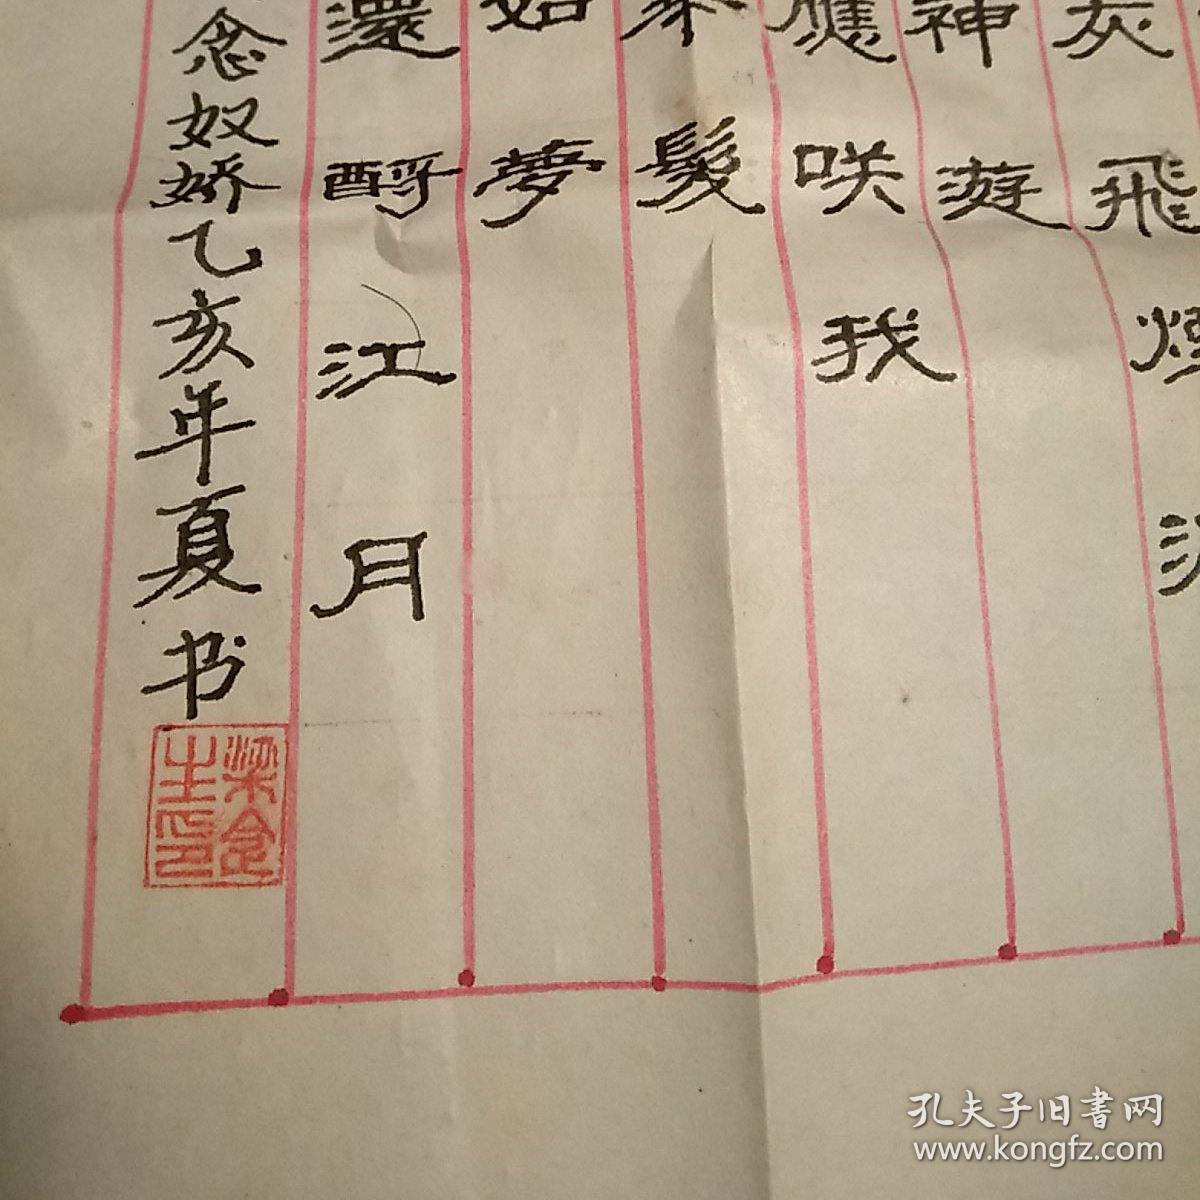 灰飛煙
神遊
應咲我
髮
如夢
還酹江月
念奴娇乙亥年夏书
梁念
生印
孔夫子旧書网
www.kongfz.com